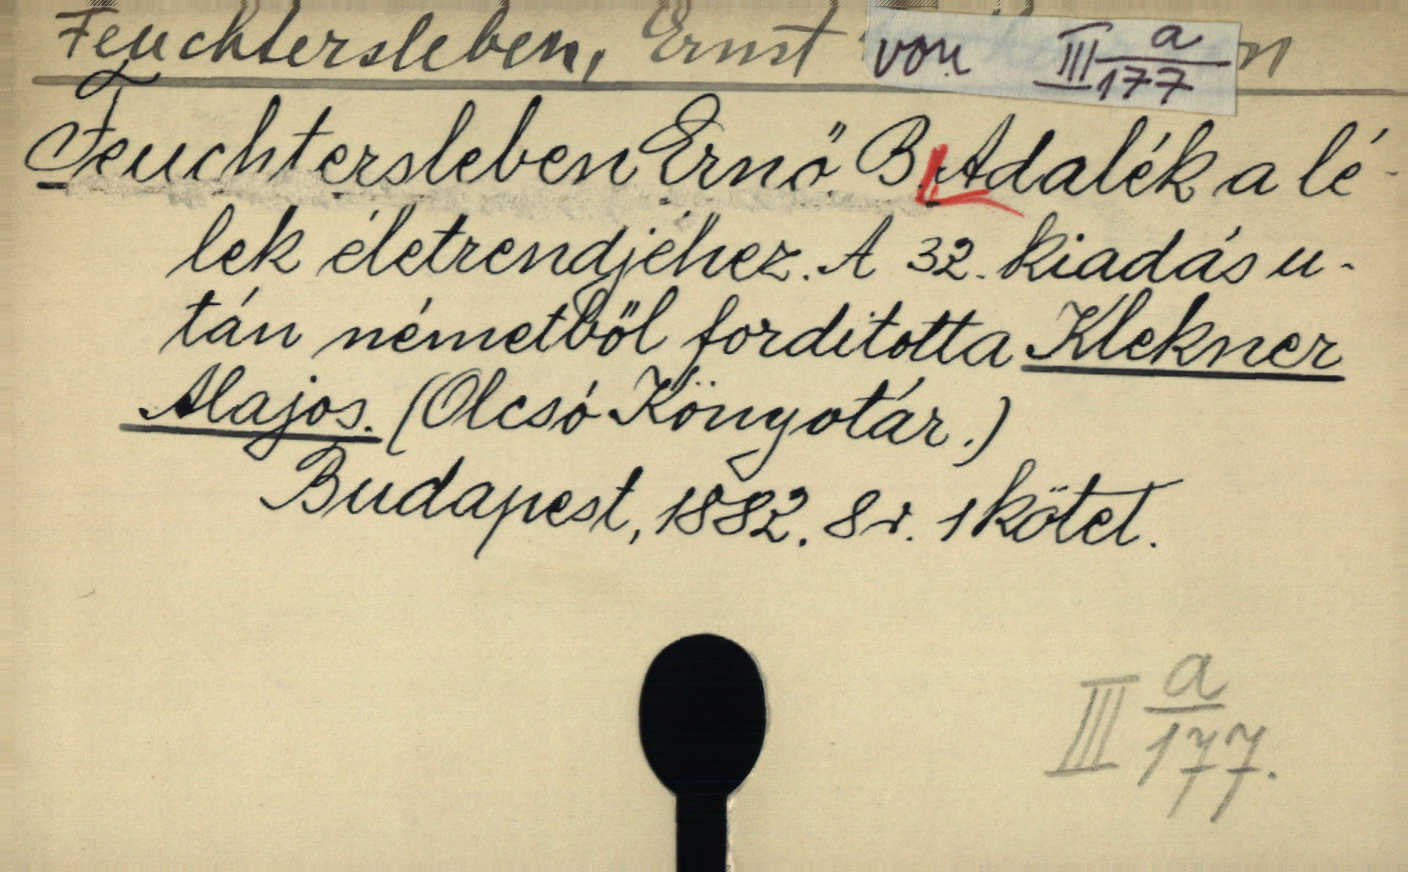 Feuchtersleben, Ernst von III a/177
Feuchtersleben Ernő B. Adalék a lé-
lek életrendjéhez. A 32. kiadás u-
tán németből fordította Klekner
Alajos. (Olcsó Könyvtár.)
Budapest, 1882. 8r. 1 kötet.
III a/177.